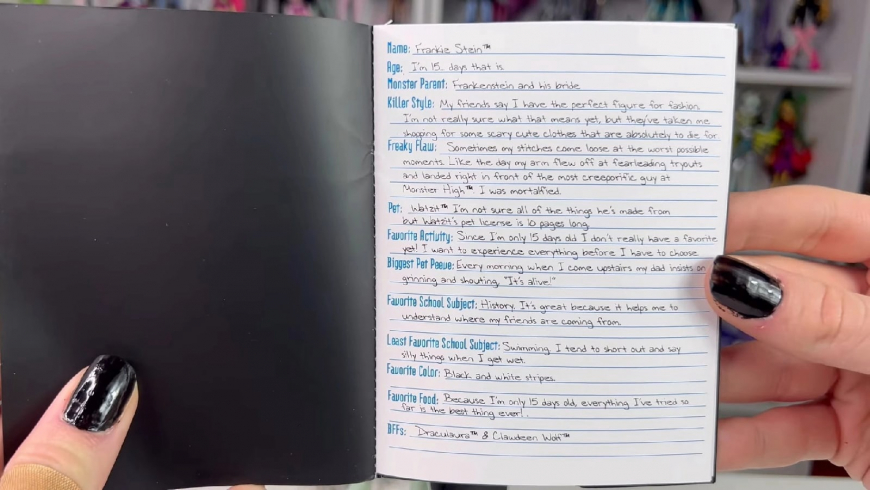 Name: Frankie Stein™
Age: I'm 15.. days that is.
Monster Parent: Frankenstein and his bride
Killer Style: My friends say I have the perfect figure for fashion.
I'm not really sure what that means yet, but they've taken me
shopping for some scary cute clothes that are absolutely to die for.
Freaky Flaw: Sometimes my stitches come loose at the worst possible
moments. Like the day my arm flew off at fearleading tryouts
and landed right in front of the most creeporific guy at
Monster High™ I was mortalfied.
Pet: Watzit™ I'm not sure all of the things he's made from
but Watzit's pet license is 10 pages long
Favorite Activity: Since I'm only 15 days old I don't really have a favorite
yet! I want to experience everything before I have to choose.
Biggest Pet Peeve: Every morning when I come upstairs my dad insists on
grinning and shouting, "It's alive!"
Favorite School Subject: History. It's great because it helps me to
understand where my friends are coming from.
Least Favorite School Subject: Swimming. I tend to short out and say
silly things when I get wet.
Favorite Color: Black and white stripes.
Favorite Food: Because I'm only 15 days old, everything I've tried so
far is the best thing ever!
BFFs: Draculaura™ & Clawdeen Wolf™